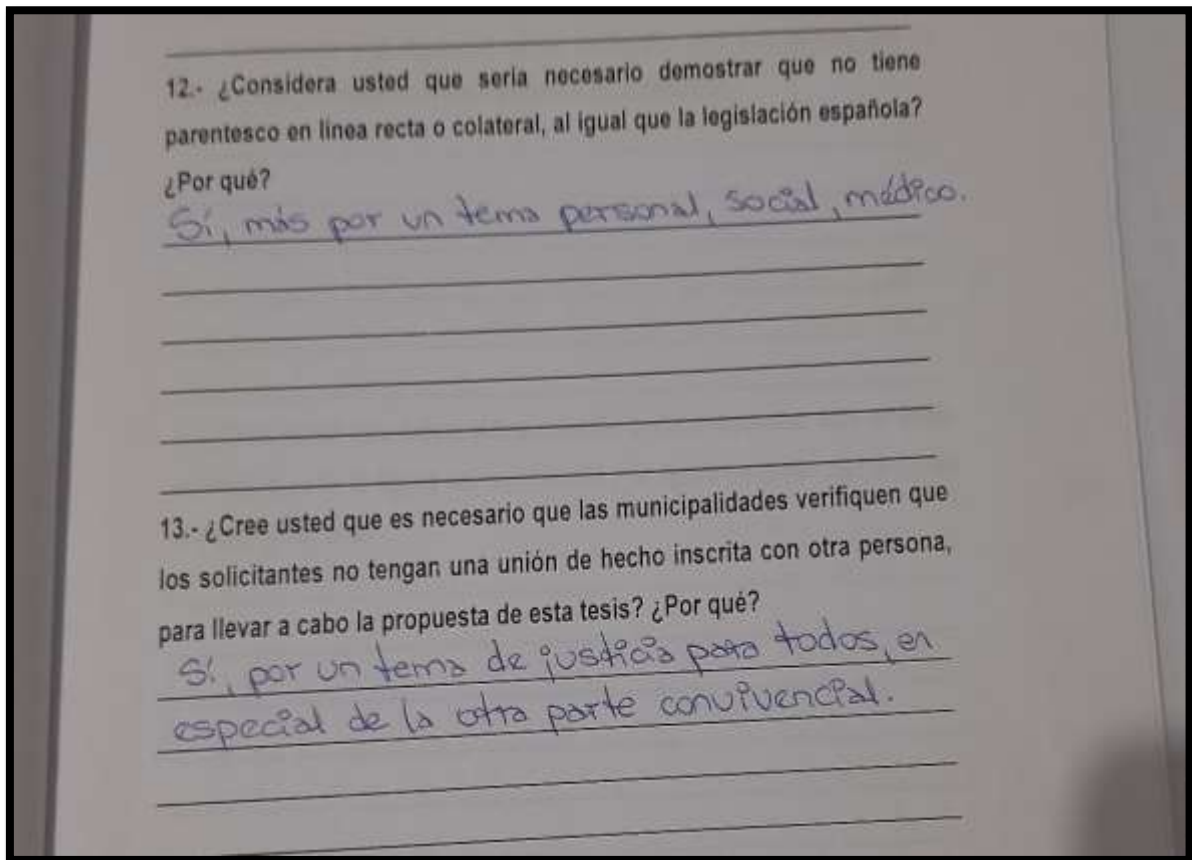 12.- ¿Considera usted que sería necesario demostrar que no tiene
parentesco en línea recta o colateral, al igual que la legislación española?
¿Por qué?
Sí, más por un tema personal, social, médico.
13.- ¿Cree usted que es necesario que las municipalidades verifiquen que
los solicitantes no tengan una unión de hecho inscrita con otra persona,
para llevar a cabo la propuesta de esta tesis? ¿Por qué?
Sí, por un tema de justicia para todos, en
especial de la otra parte convivencial.